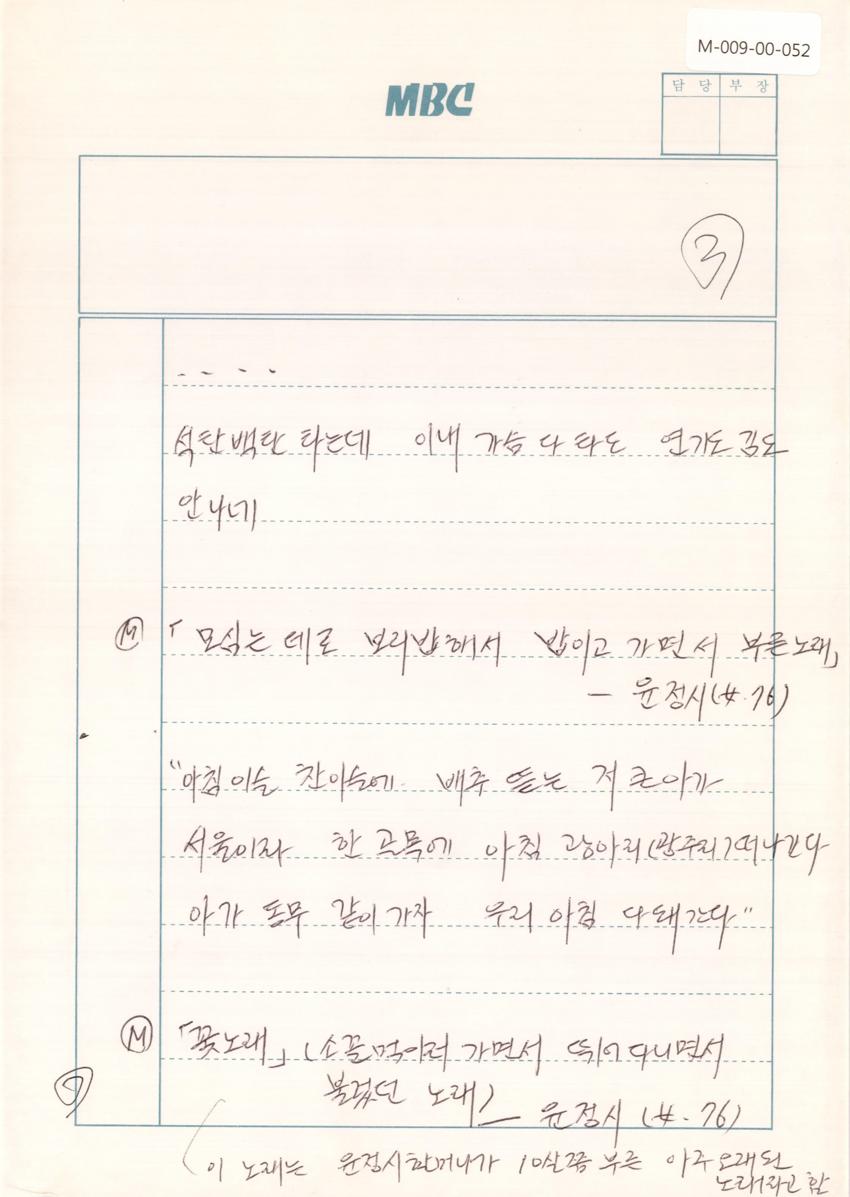 M-009-00-052
MBC
담당 부장
3
....
석탄백탄 타는데 이내 가슴 다 타도 연기도 김도
안나네
Ⓜ 「모심는 데로 보리밥해서 밥이고 가면서 부른노래」
— 윤정시(女.76)
"아침이슬 찬이슬에 배추 뜯는 저 큰아가
서울이라 한 골목에 아침 광아리(광주리)떠나간다
아가 동무 같이가자 우리 아침 다돼간다"
Ⓜ 「꽃노래」 (소꼴먹이러 가면서 뛰어다니면서
불렀던 노래) — 윤정시 (女.76)
이 노래는 윤정시할머니가 10살쯤 부른 아주 오래된
노래라고 함